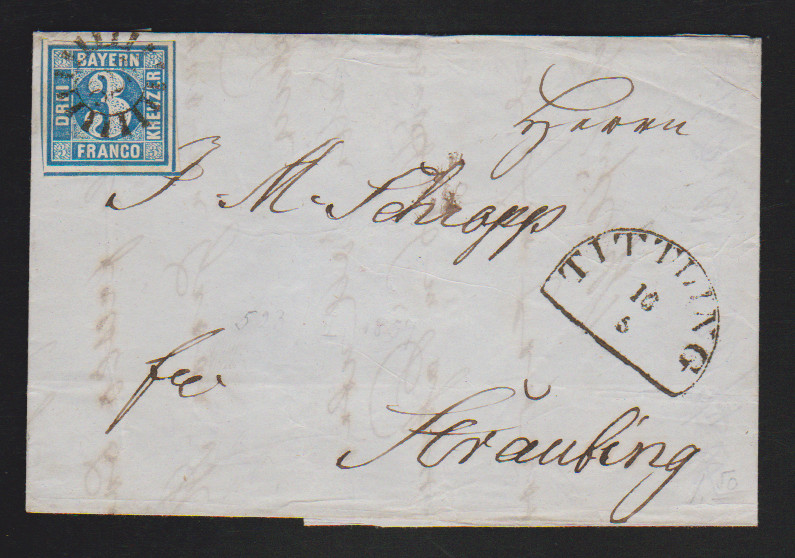 BAYERN
DREI
3
KREUZER
FRANCO
Herrn
J. M. Schropp
TITTLING
10
5
fr
Straubing